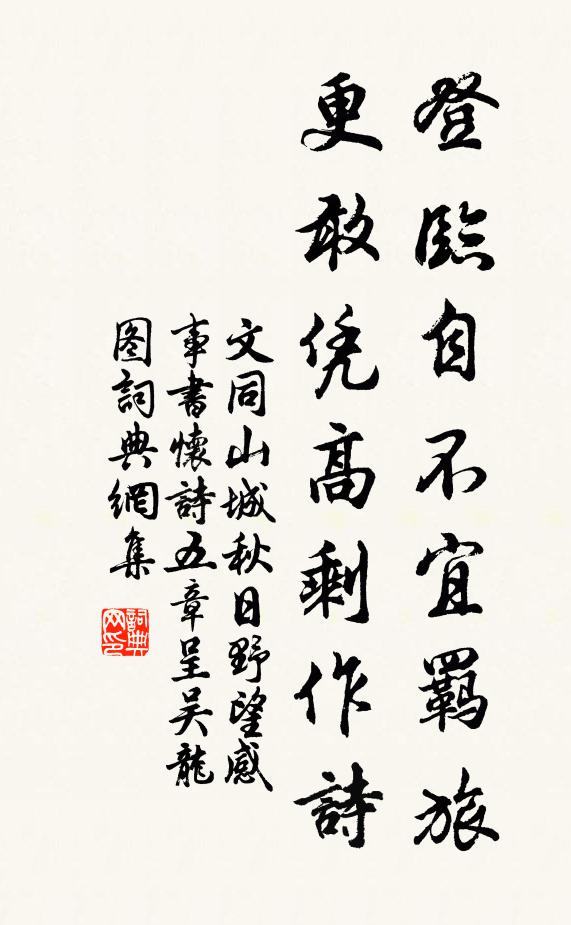 登臨自不宜羈旅
更敢凭高剩作詩
文同山城秋日野望感
事書懷詩五章呈吴龍
图詞典網集
詞典
网印